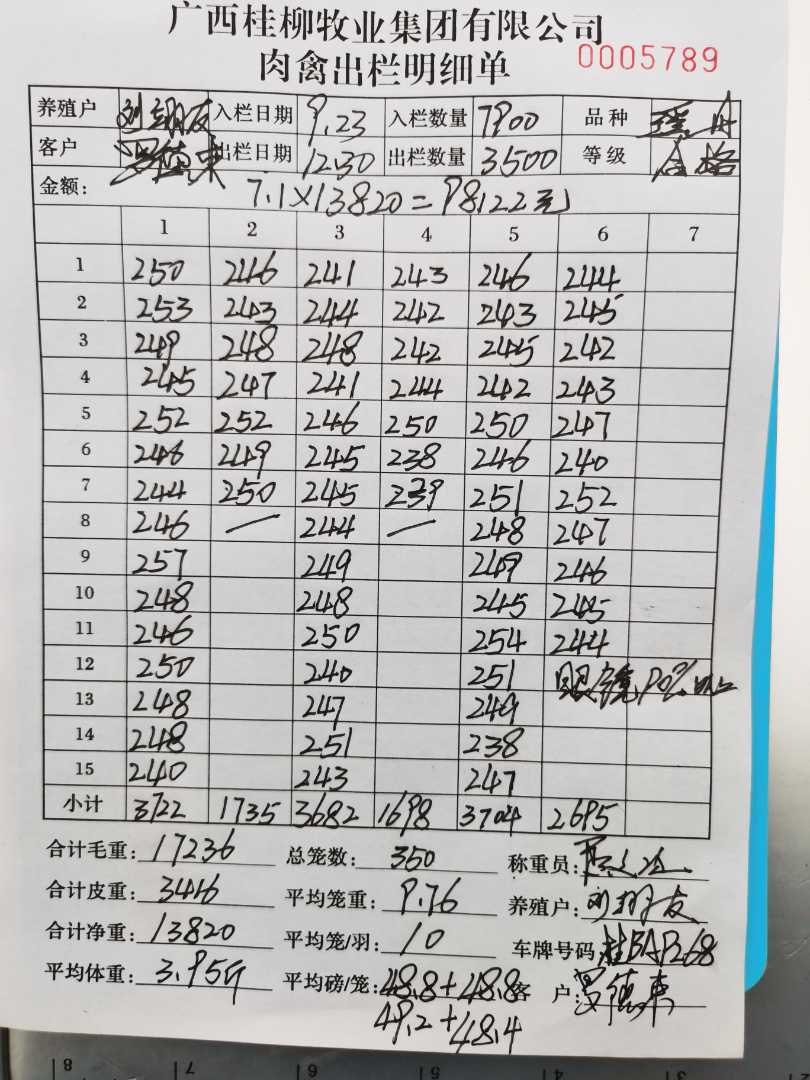 广西桂柳牧业集团有限公司
肉禽出栏明细单 0005789
养殖户 刘翔友 入栏日期 9.23 入栏数量 7900 品种
客户 罗德东 出栏日期 12.30 出栏数量 3500 等级 合格
金额: 7.1×13820=98122元
1 2 3 4 5 6 7
1 250 246 241 243 246 244
2 253 243 244 242 243 245
3 249 248 248 242 245 242
4 245 247 241 244 242 243
5 252 252 246 250 250 247
6 246 249 245 238 246 240
7 244 250 245 239 251 252
8 246 — 244 — 248 247
9 257 249 249 246
10 248 248 245 245
11 246 250 254 244
12 250 240 251 90%以上
13 248 247 249
14 248 251 238
15 240 243 247
小计 3722 1735 3682 1698 3704 2695
合计毛重: 17236 总笼数: 350 称重员:
合计皮重: 3416 平均笼重: 9.76 养殖户: 刘翔友
合计净重: 13820 平均笼/羽: 10 车牌号码:
平均体重: 3.95斤 平均磅/笼: 48.8+48.8 客户: 罗德东
49.2+48.4